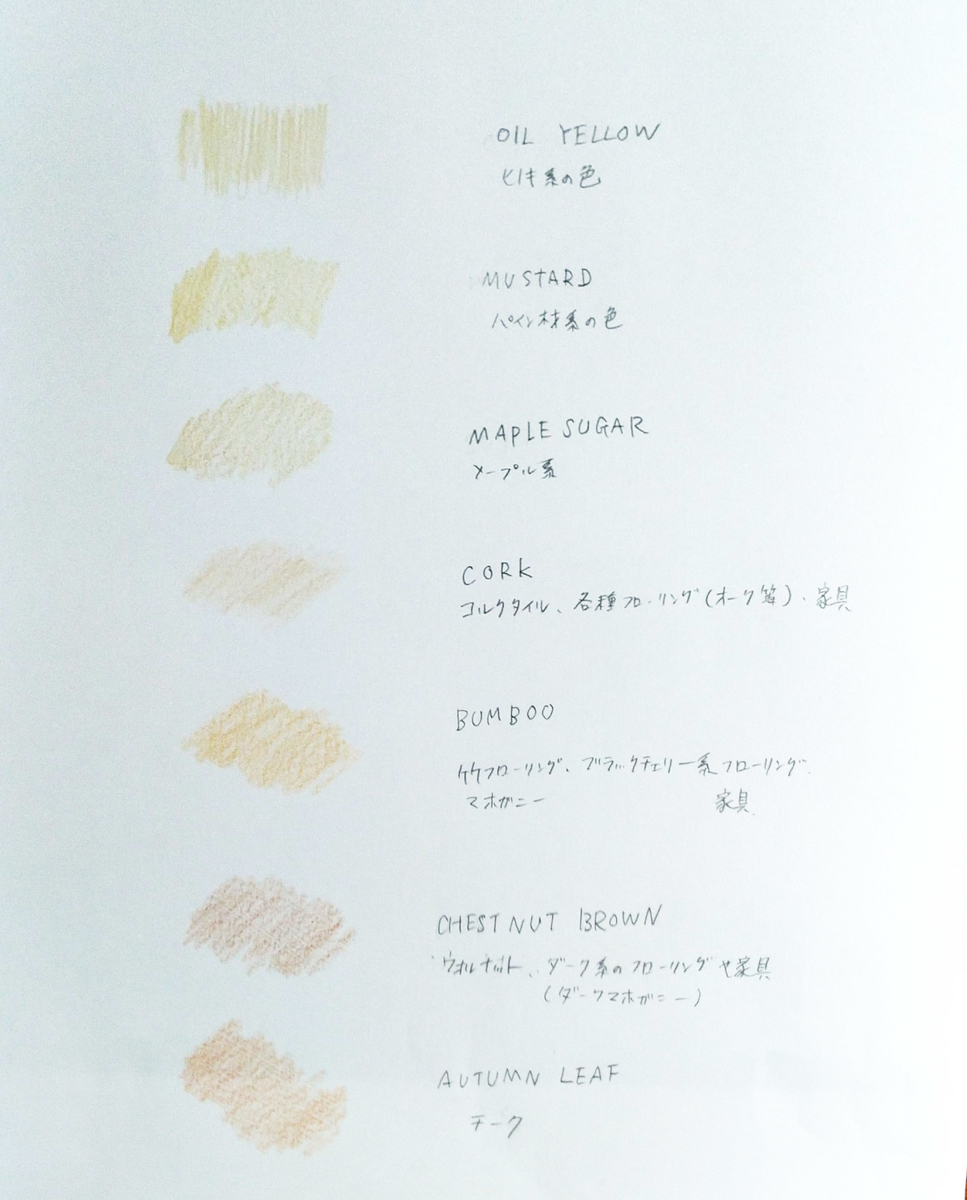 OIL YELLOW
ヒノキ系の色
MUSTARD
パイン材系の色
MAPLE SUGAR
メープル系
CORK
コルクタイル、各種フローリング(オーク等)・家具
BUMBOO
ケケフローリング、ブラックチェリー系フローリング
マホガニー 家具
CHESTNUT BROWN
ウォルナット、ダーク系のフローリングや家具
(ダークマホガニー)
AUTUMN LEAF
チーク